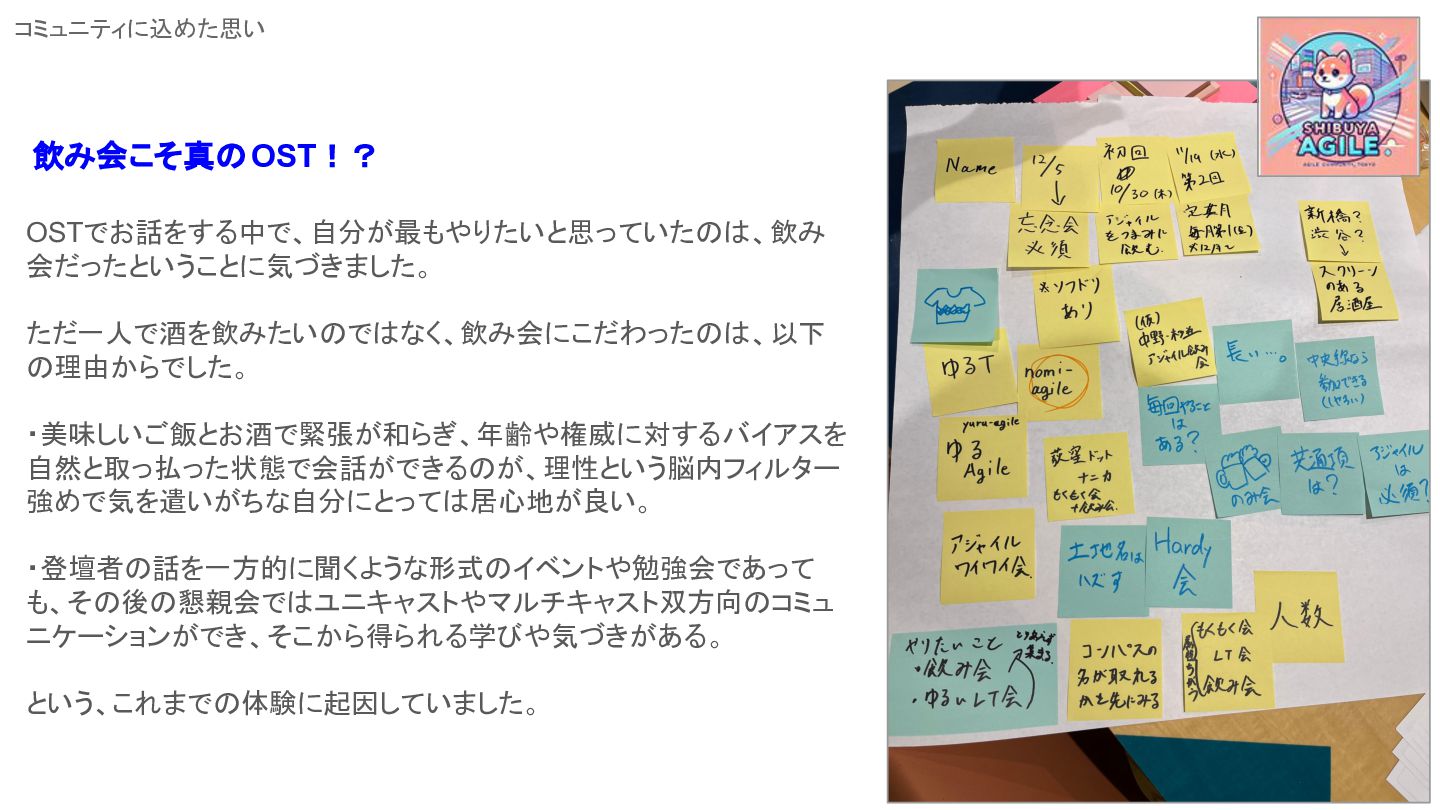 コミュニティに込めた思い
飲み会こそ真のOST！？
OSTでお話をする中で、自分が最もやりたいと思っていたのは、飲み
会だったということに気づきました。
ただ一人で酒を飲みたいのではなく、飲み会にこだわったのは、以下
の理由からでした。
・美味しいご飯とお酒で緊張が和らぎ、年齢や権威に対するバイアスを
自然と取っ払った状態で会話ができるのが、理性という脳内フィルター
強めで気を遣いがちな自分にとっては居心地が良い。
・登壇者の話を一方的に聞くような形式のイベントや勉強会であって
も、その後の懇親会ではユニキャストやマルチキャスト双方向のコミュ
ニケーションができ、そこから得られる学びや気づきがある。
という、これまでの体験に起因していました。
SHIBUYA
AGILE.
Name
12/5
↓
忘念会
必須
初回
10/30(木)
アジャイル
をつまみに
飲む.
11/19(水)
第2回
定某月
毎月第1(金)
新橋?
渋谷?
↓
スクリーン
のある
居酒屋
※ソフドリ
あり
ゆるT
nomi-
agile
(仮)
アジャイル飲み
会
長い…。
中央線なら
参加できる
毎回やること
は
ある?
yuru-agile
ゆる
Agile
荻窪ドット
ナニカ
もくもく会
+飲み会.
のみ会
共通項
は?
アジャイル
は
必須?
アジャイル
ワイワイ会.
土地名は
ハズす
Hardy
会
人数
やりたいこと
・飲み会
・ゆるいLT会
とりあえず
集まる
コンパスの
名が取れる
かを先にみる
もくもく会
LT会
飲み会